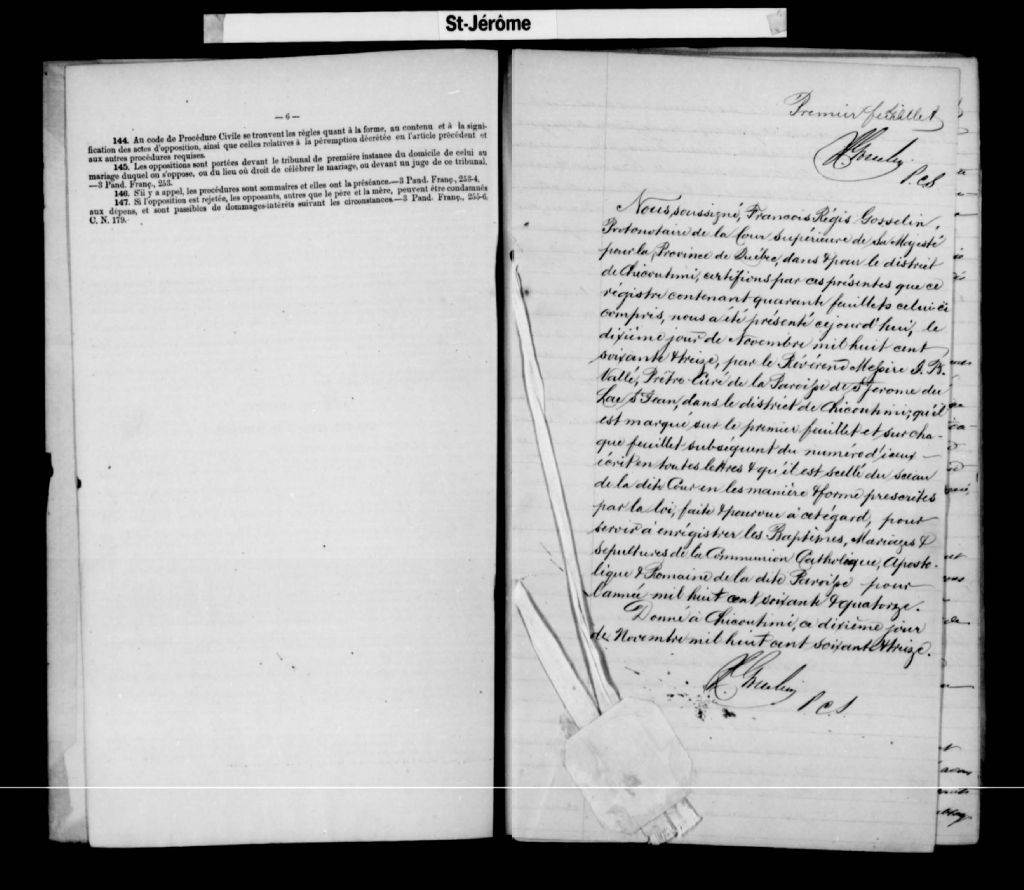 St-Jérôme
— 6 —
144. Au code de Procédure Civile se trouvent les règles quant à la forme, au contenu et à la signi-
fication des actes d'opposition, ainsi que celles relatives à la péremption décrétée en l'article précédent et
aux autres procédures requises.
145. Les oppositions sont portées devant le tribunal de première instance du domicile de celui au
mariage duquel on s'oppose, ou du lieu où droit de célébrer le mariage, ou devant un juge de ce tribunal.
—3 Pand. Franç., 253.
146. S'il y a appel, les procédures sont sommaires et elles ont la préséance.—3 Pand. Franç., 253-4.
147. Si l'opposition est rejetée, les opposants, autres que le père et la mère, peuvent être condamnés
aux dépens, et sont passibles de dommages-intérêts suivant les circonstances.—3 Pand. Franç., 255-6.
C. N. 179.
Premier feuillet
P.C.S
Nous, soussigné, Francois Régis Gosselin,
Protonotaire de la Cour Supérieure de Sa Majesté
pour la Province de Québec, dans & pour le district
de Chicoutimi, certifions par ces présentes que ce
régistre contenant quarante feuillets celui-ci
compris, nous a été présenté cejourd'hui, le
dixième jour de Novembre mil huit cent
soixante & treize, par le Révérend Messire J. B.
Vallé, Prêtre Curé de la Paroisse de St Jerome du
Lac St Jean, dans le district de Chicoutimi; qu'il
est marqué sur le premier feuillet et sur cha-
que feuillet subséquent du numéro d'iceux —
écrit en toutes lettres & qu'il est scellé du sceau
de la dite Cour en les manière & forme prescrites
par la loi, faite & pourvue à cet égard, pour
servir à enrégistrer les Baptêmes, Mariages &
Sépultures de la Communion Catholique, Aposto-
lique & Romaine de la dite Paroisse pour
l'année mil huit cent soixante & quatorze.
Donné à Chicoutimi, ce dixième jour
de Novembre mil huit cent soixante & treize.
P.C.S.